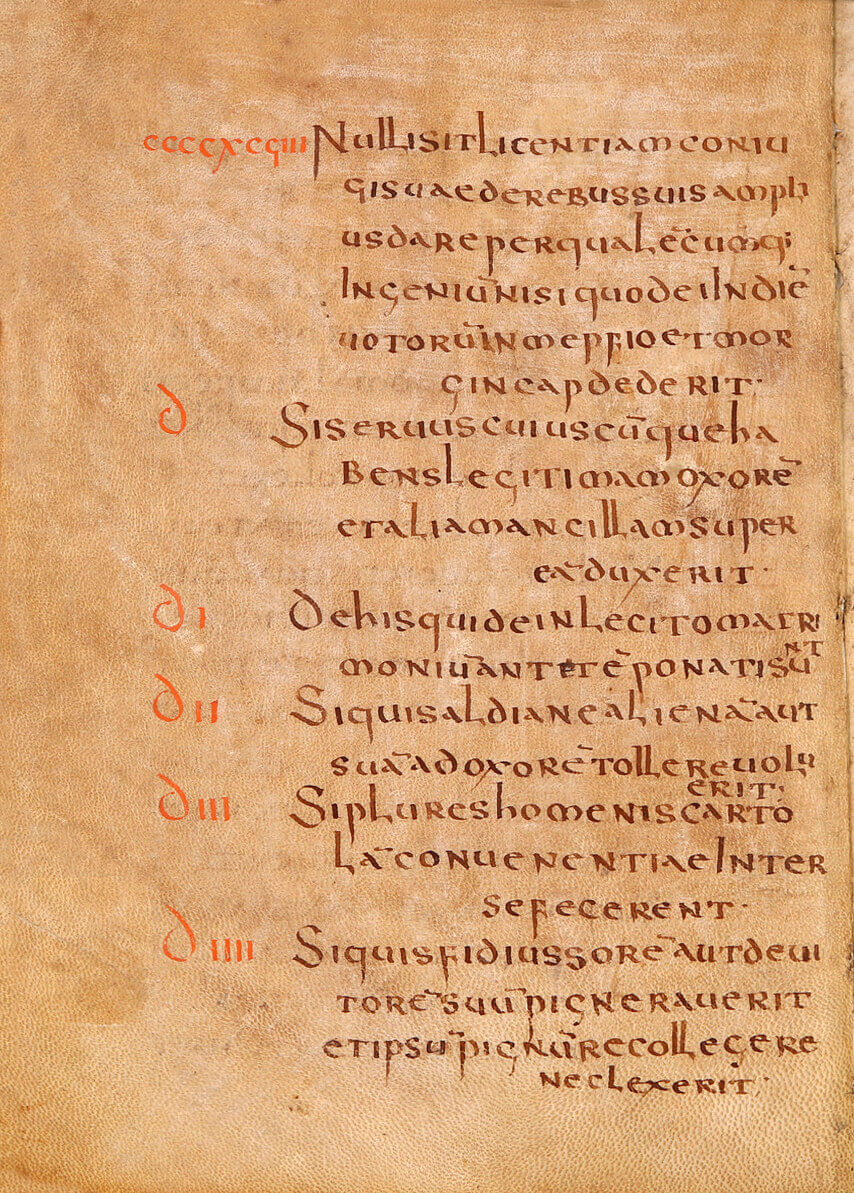 ccccxcϛiii Nulli sit licentiam coniu
gi suae de rebus suis ampli
us dare per qualēcumq;
Ingeniū nisi quod ei In diē
uotorū In mepfio et mor
gincap dederit:·
d Si seruus cuiuscūque ha
bens legitimam oxorē
et alia mancillam super
eā duxerit·
di De his qui de inlecito matri
moniū ante tē ponati sūnt
dii Si quis aldiane alienā aut
suā ad oxorē tollere uolu
erit:
diii Si plures homenis carto
lā conuenentiae Inter
se fecerent·
diiii Si quis fidiussorē aut deui
torē suū pignerauerit
et ipsū pignū recollegere
neclexerit:·